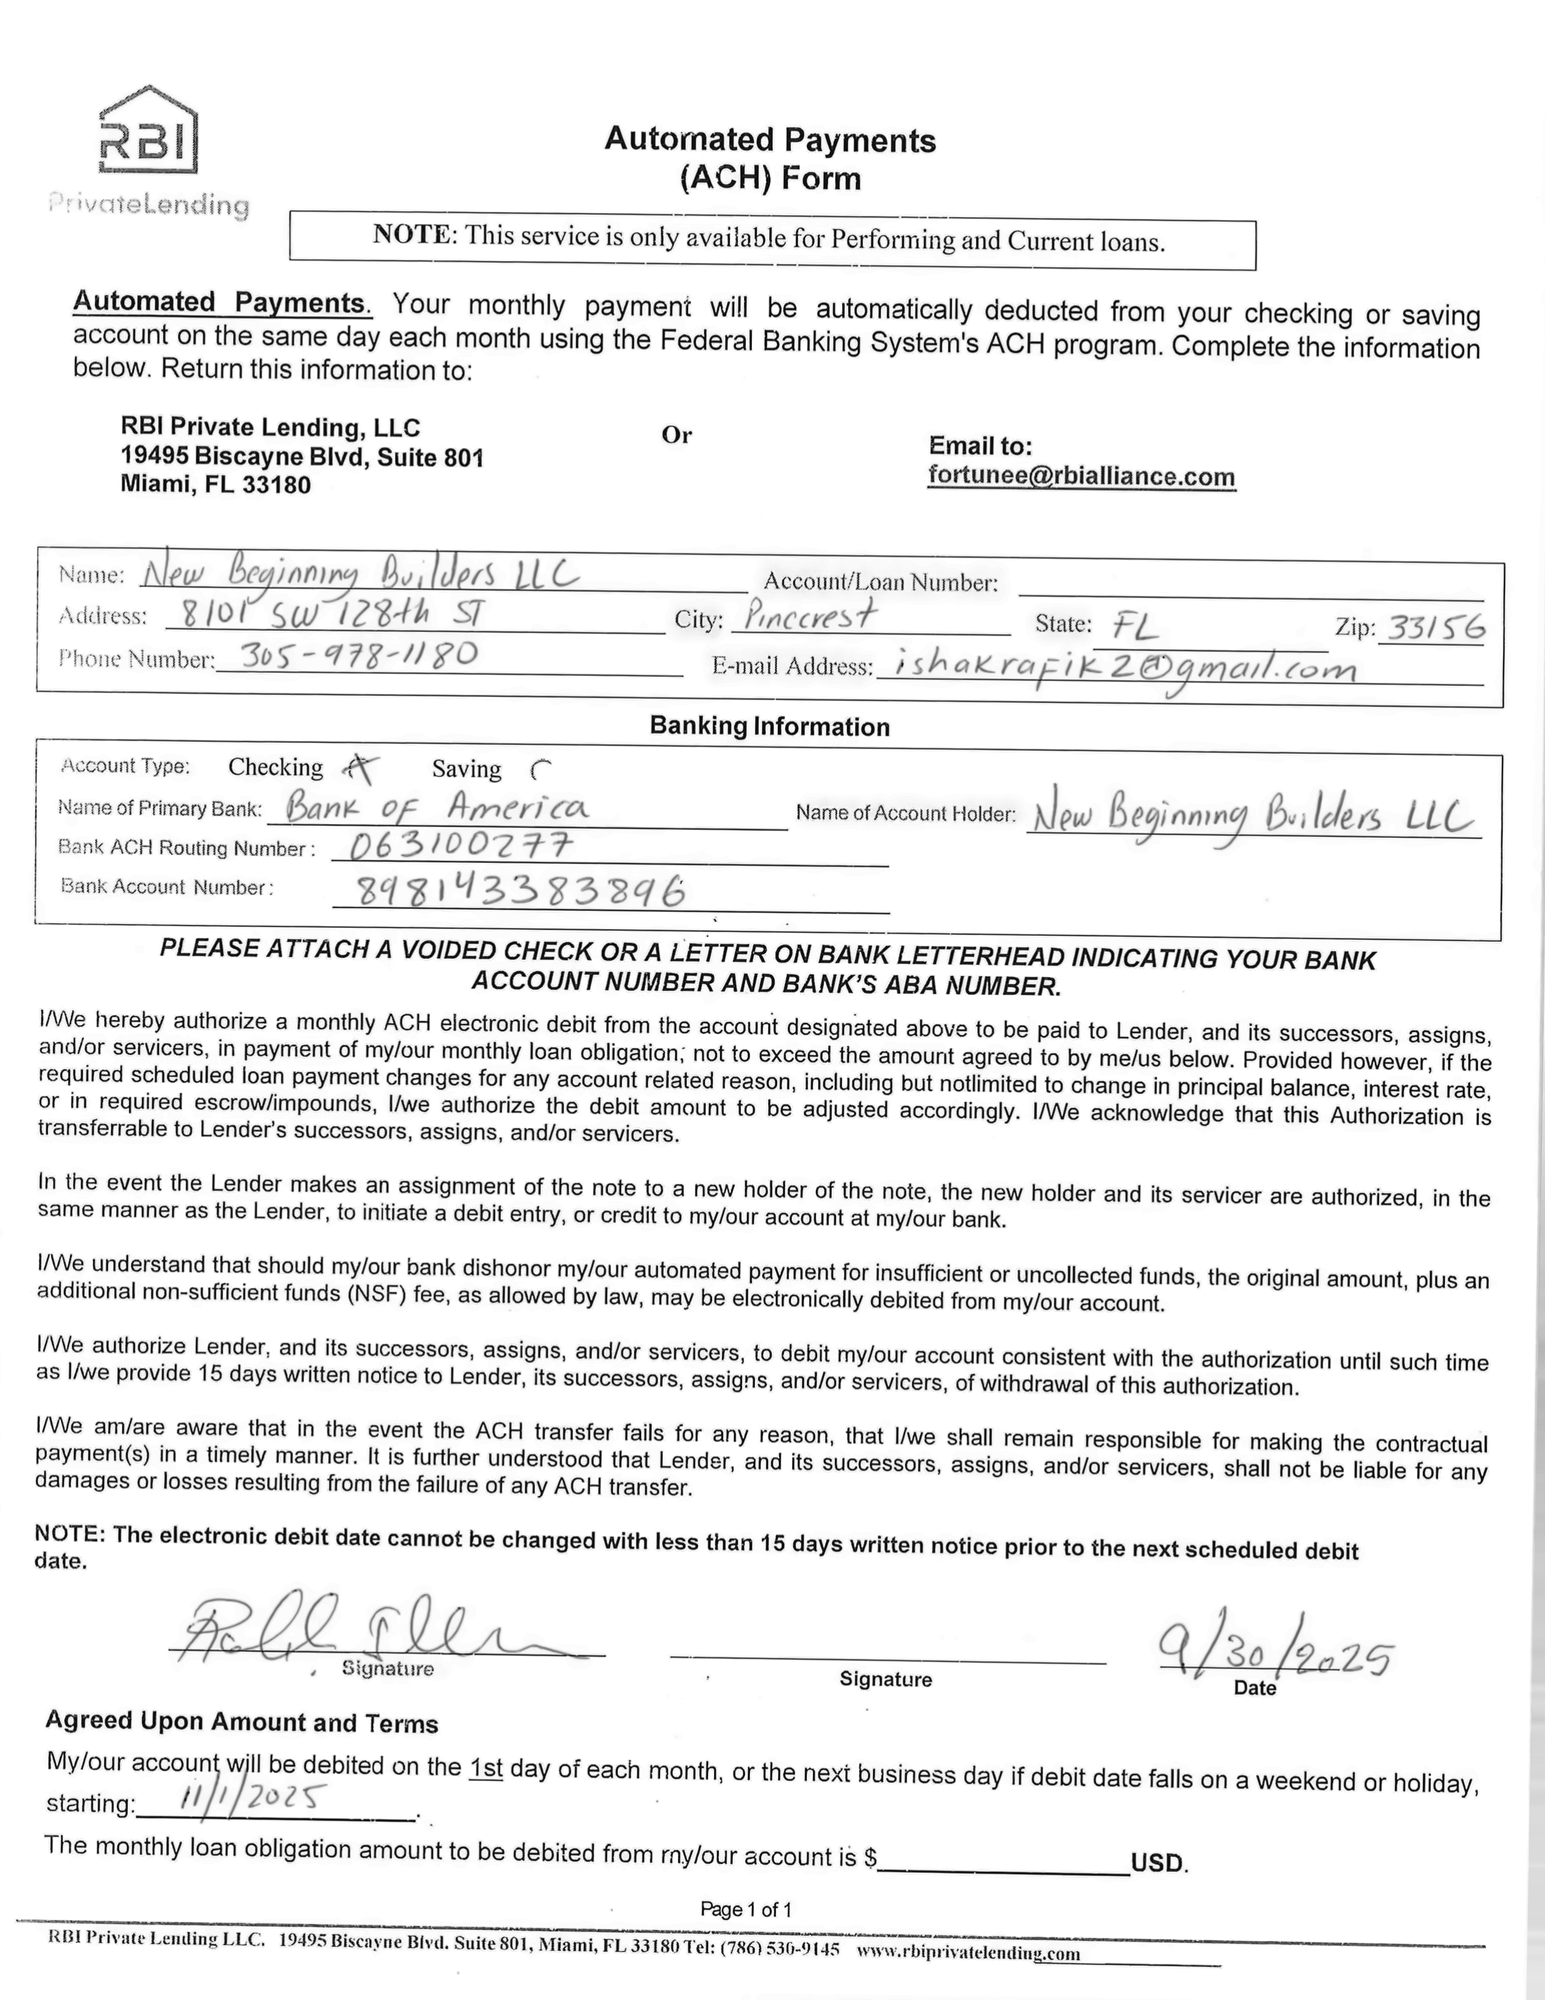 RBI
PrivateLending
Automated Payments
(ACH) Form
NOTE: This service is only available for Performing and Current loans.
Automated Payments. Your monthly payment will be automatically deducted from your checking or saving
account on the same day each month using the Federal Banking System's ACH program. Complete the information
below. Return this information to:
RBI Private Lending, LLC
19495 Biscayne Blvd, Suite 801
Miami, FL 33180
Or
Email to:
fortunee@rbialliance.com
Name: New Beginning Builders LLC Account/Loan Number:
Address: 8101 SW 128th ST City: Pinecrest State: FL Zip: 33156
Phone Number: 305-978-1180 E-mail Address: ishakrafik2@gmail.com
Banking Information
Account Type: Checking Saving
Name of Primary Bank: Bank OF America Name of Account Holder: New Beginning Builders LLC
Bank ACH Routing Number: 063100277
Bank Account Number: 898143383896
PLEASE ATTACH A VOIDED CHECK OR A LETTER ON BANK LETTERHEAD INDICATING YOUR BANK
ACCOUNT NUMBER AND BANK'S ABA NUMBER.
I/We hereby authorize a monthly ACH electronic debit from the account designated above to be paid to Lender, and its successors, assigns,
and/or servicers, in payment of my/our monthly loan obligation; not to exceed the amount agreed to by me/us below. Provided however, if the
required scheduled loan payment changes for any account related reason, including but notlimited to change in principal balance, interest rate,
or in required escrow/impounds, I/we authorize the debit amount to be adjusted accordingly. I/We acknowledge that this Authorization is
transferrable to Lender's successors, assigns, and/or servicers.
In the event the Lender makes an assignment of the note to a new holder of the note, the new holder and its servicer are authorized, in the
same manner as the Lender, to initiate a debit entry, or credit to my/our account at my/our bank.
I/We understand that should my/our bank dishonor my/our automated payment for insufficient or uncollected funds, the original amount, plus an
additional non-sufficient funds (NSF) fee, as allowed by law, may be electronically debited from my/our account.
I/We authorize Lender, and its successors, assigns, and/or servicers, to debit my/our account consistent with the authorization until such time
as I/we provide 15 days written notice to Lender, its successors, assigns, and/or servicers, of withdrawal of this authorization.
I/We am/are aware that in the event the ACH transfer fails for any reason, that I/we shall remain responsible for making the contractual
payment(s) in a timely manner. It is further understood that Lender, and its successors, assigns, and/or servicers, shall not be liable for any
damages or losses resulting from the failure of any ACH transfer.
NOTE: The electronic debit date cannot be changed with less than 15 days written notice prior to the next scheduled debit
date.
9/30/2025
Signature Signature Date
Agreed Upon Amount and Terms
My/our account will be debited on the 1st day of each month, or the next business day if debit date falls on a weekend or holiday,
starting: 11/1/2025.
The monthly loan obligation amount to be debited from my/our account is $ USD.
Page 1 of 1
RBI Private Lending LLC. 19495 Biscayne Blvd. Suite 801, Miami, FL 33180 Tel: (786) 530-9145 www.rbiprivatelending.com